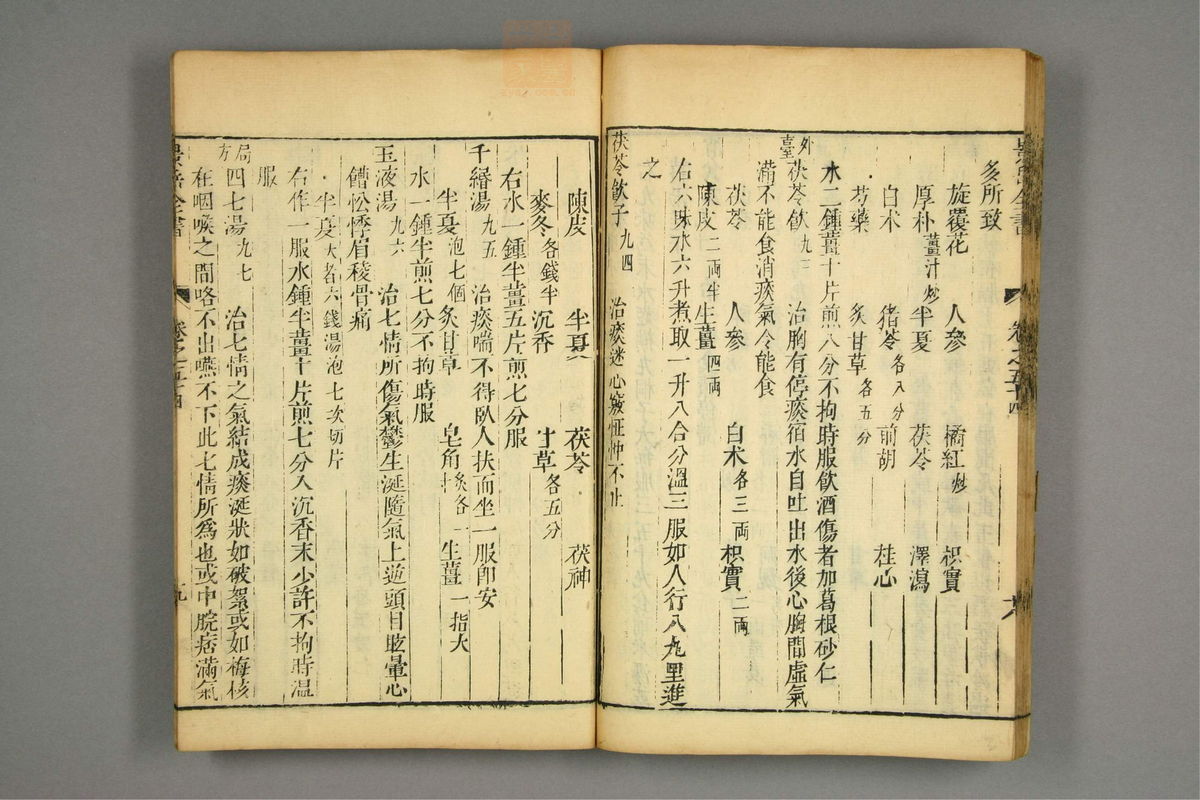 多所致
旋覆花 人參 橘紅炒 枳實
厚朴薑汁炒 半夏 茯苓 澤瀉
白朮 猪苓各八分 前胡 桂心
芍藥 炙甘草各五分
水二鍾薑十片煎八分不拘時服飲酒傷者加葛根砂仁
外臺茯苓飲九三 治胸有停痰宿水自吐出水後心胸間虛氣
滿不能食消痰氣令能食
茯苓 人參 白朮各三兩 枳實二兩
陳皮二兩半 生薑四兩
右六味水六升煮取一升八合分溫三服如人行八九里進
之
茯苓飲子九四 治痰迷心竅怔忡不止
陳皮 半夏 茯苓 茯神
麥冬各錢半 沉香 甘草各五分
右水一鍾半薑五片煎七分服
千緡湯九五 治痰喘不得臥人扶而坐一服即安
半夏泡七個 炙甘草 皂角炙各一寸 生薑一指大
水一鍾半煎七分不拘時服
玉液湯九六 治七情所傷氣鬱生涎隨氣上逆頭目眩暈心
饆忪悸眉稜骨痛
半夏大者六錢湯泡七次切片
右作一服水鍾半薑十片煎七分入沉香末少許不拘時溫
服
局方四七湯九七 治七情之氣結成痰涎狀如破絮或如梅核
在咽喉之間咯不出嚥不下此七情所爲也或中脘痞滿氣
景岳全書 卷之五十四 九